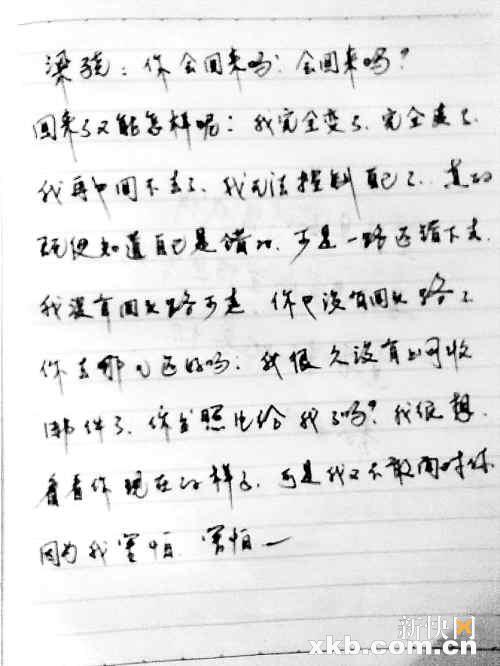 梁骁：你会回来吗？会回来吗？
回来了又能怎样呢？我完全变了、完全变了、
我再也回不去了、我无法控制自己了、真的
既便知道自己是错的、可是一路还错下去、
我没有回头路可走、你也没有回头路了
你在那儿还好吗？我很久没有上网收
邮件了、你发照片给我了吗？我很想、
看看你现在的样子、可是我又不敢面对你
因为我害怕、害怕—
新快网
xkb.com.cn